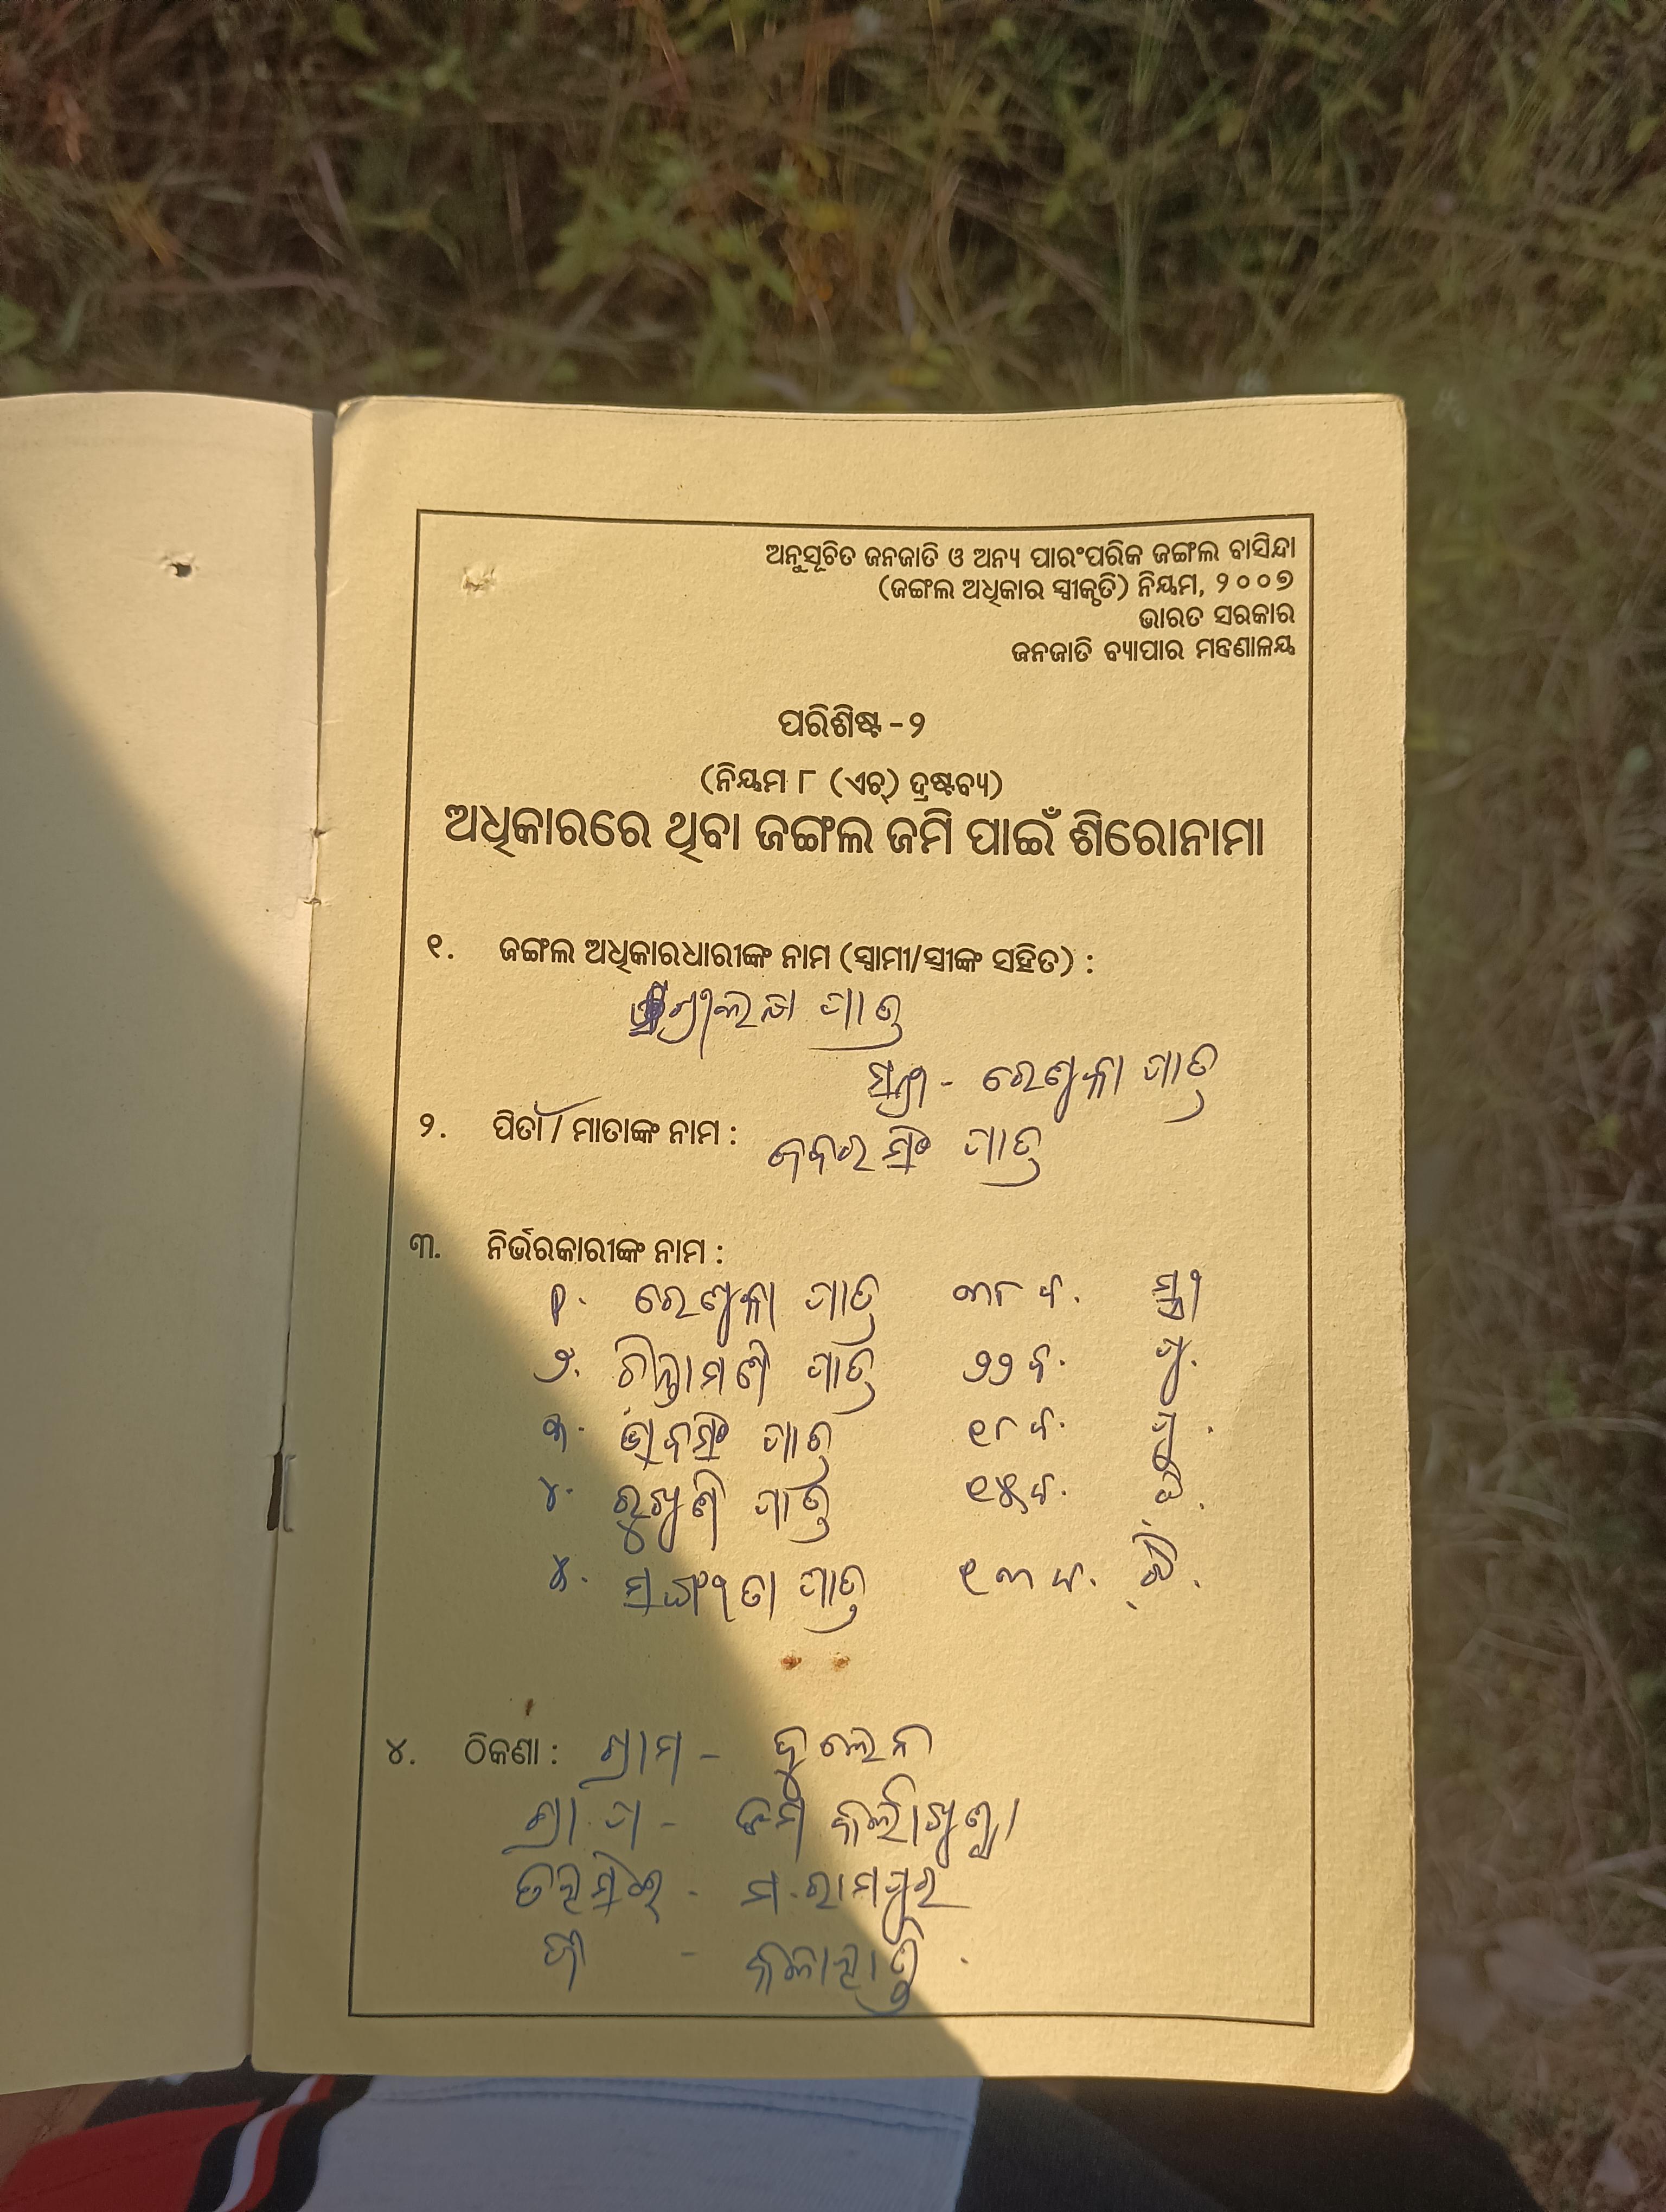 ଅନୁସୂଚିତ ଜନଜାତି ଓ ଅନ୍ୟ ପାରଂପରିକ ଜଙ୍ଗଲ ବାସିନ୍ଦା
(ଜଙ୍ଗଲ ଅଧିକାର ସ୍ୱୀକୃତି) ନିୟମ, ୨୦୦୭
ଭାରତ ସରକାର
ଜନଜାତି ବ୍ୟାପାର ମନ୍ତ୍ରଣାଳୟ
ପରିଶିଷ୍ଟ - ୨
(ନିୟମ ୮ (ଏଚ୍) ଦ୍ରଷ୍ଟବ୍ୟ)
ଅଧିକାରରେ ଥିବା ଜଙ୍ଗଲ ଜମି ପାଇଁ ଶିରୋନାମା
୧. ଜଙ୍ଗଲ ଅଧିକାରଧାରୀଙ୍କ ନାମ (ସ୍ୱାମୀ/ସ୍ତ୍ରୀଙ୍କ ସହିତ) :
ପାତ୍ର
ସ୍ତ୍ରୀ - ରେଣୁକା ପାତ୍ର
୨. ପିତା / ମାତାଙ୍କ ନାମ : ପାତ୍ର
୩. ନିର୍ଭରକାରୀଙ୍କ ନାମ :
୧. ରେଣୁକା ପାତ୍ର ୩୮ ବ. ସ୍ତ୍ରୀ
୨. ଚିନ୍ତାମଣି ପାତ୍ର ୨୨ ବ. ପୁ.
୩. ପାତ୍ର ୧୮ ବ. ପୁ.
୪. ପାତ୍ର ୧୫ ବ. ଝି.
୫. ପାତ୍ର ୧୩ ବ. ଝି.
୪. ଠିକଣା : ଗ୍ରାମ - ଦୁଲେନ
ଗ୍ରା. ପ -
ତହସିଲ - ମ. ରାମପୁର
ଜି - କଳାହାଣ୍ଡି